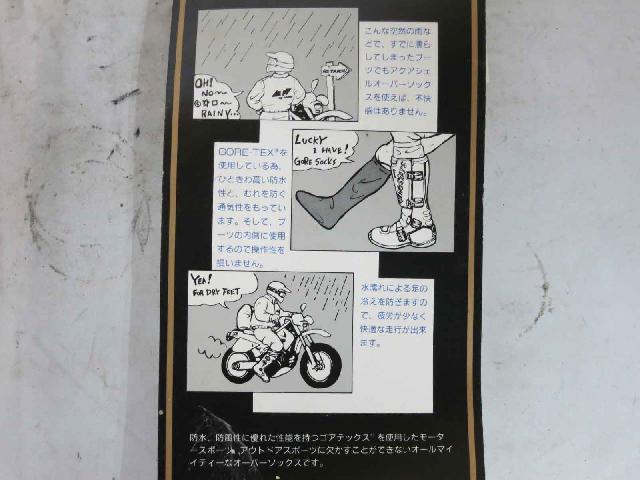 OH!
NO~
RAINY...
こんな突然の雨な
どで、すでに濡ら
してしまったブー
ツでもアクアシェル
オーバーソック
スを使えば、不快
感はありません。
LUCKY
I HAVE!
GORE SOCKS
GORE-TEX®を
使用している為、
ひときわ高い防水
性と、むれを防ぐ
通気性をもってい
ます。そして、ブ
ーツの内側に使用
するので操作性を
損いません。
YEA!
FOR DRY FEET
水濡れによる足の
冷えを防ぎますの
で、疲労が少なく
快適な走行が出来
ます。
防水、防風性に優れた性能を持つゴアテックス®を使用したモータ
ースポーツ、アウトドアスポーツに欠かすことができないオールマイ
イティーなオーバーソックスです。